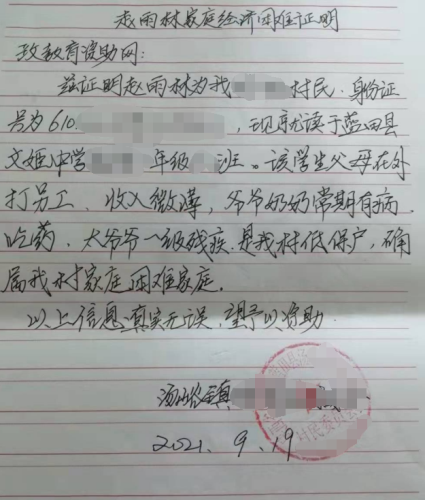 赵雨林家庭经济困难证明
致教育资助网:
兹证明赵雨林为我 村民.身份证
号为610 ,现就读于蓝田县
文姬中学 年级 班。该学生父母在外
打另工、收入微薄,爷爷奶奶常期有病.
吃药、太爷爷一级残疾.是我村低保户,确
属我村家庭困难家庭.
以上信息真实无误,望予以资助.
汤峪镇
村民委员会
2021.9.19